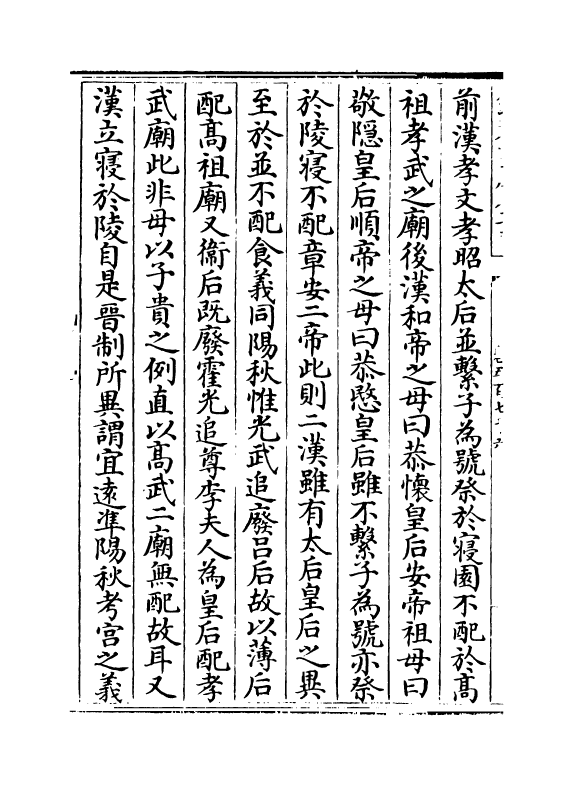 前漢孝文孝昭太后並繫子為號祭於寢園不配於髙
祖孝武之廟後漢和帝之母曰恭懷皇后安帝祖母曰
敬隠皇后順帝之母曰恭愍皇后雖不繫子為號亦祭
於陵寢不配章安二帝此則二漢雖有太后皇后之異
至於並不配食義同陽秋惟光武追廢吕后故以薄后
配髙祖廟又衛后既廢霍光追尊李夫人為皇后配孝
武廟此非母以子貴之例直以髙武二廟無配故耳又
漢立寢於陵自是晉制所異謂宜逺準陽秋考宫之義